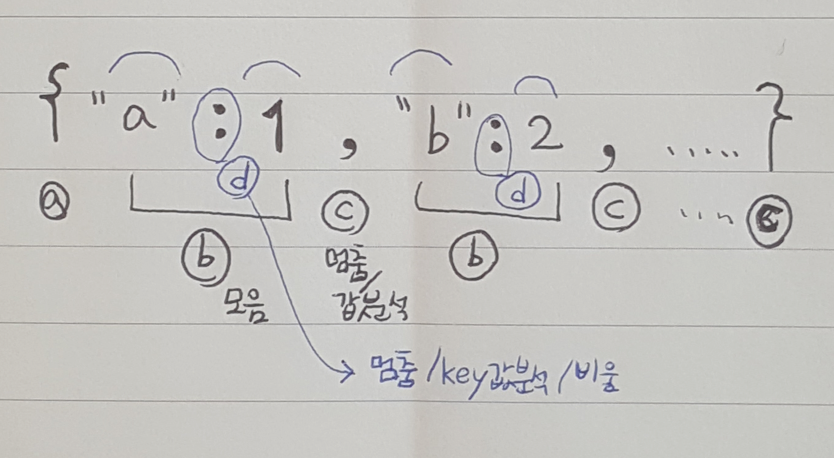 { "a" : 1 , "b" : 2 , ..... }
ⓐ ⓓ ⓒ ⓓ ⓒ ..... ⓒ
ⓑ 멈춤/ ⓑ
모음 값분석
멈춤/key값분석/비움